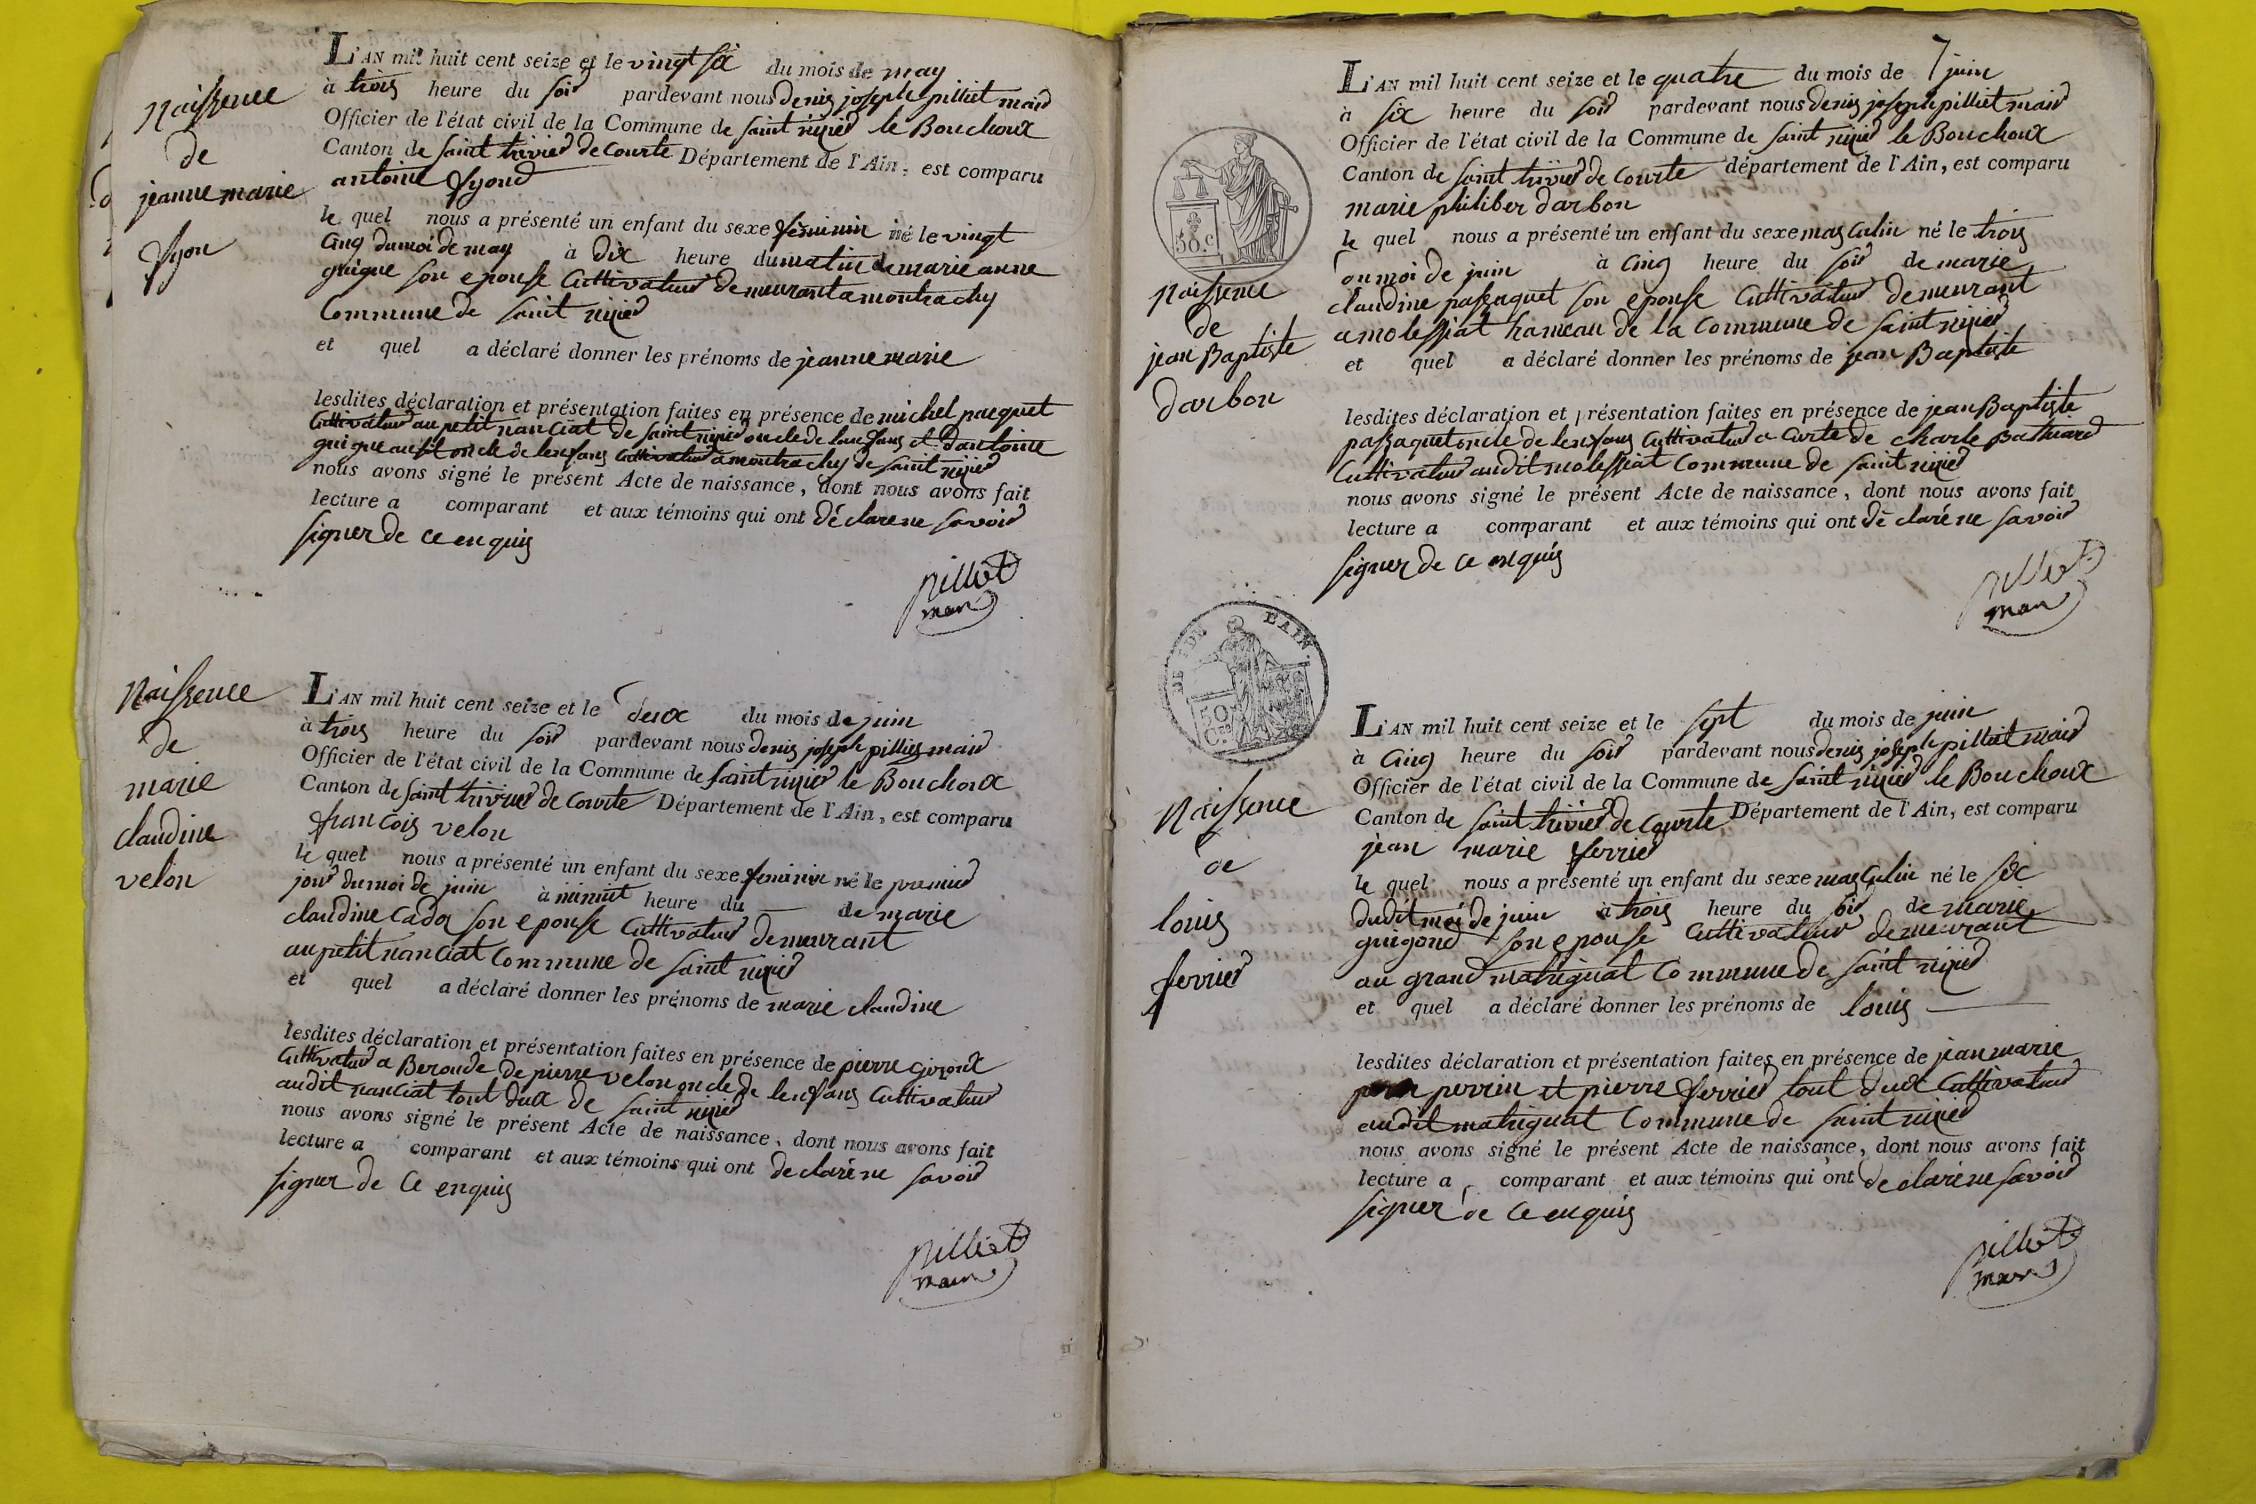 Naissence
de
jeanne marie
fyon
L'AN mil huit cent seize et le vingt six du mois de may
à trois heure du soir pardevant nous denis joseph pilliet mair
Officier de l'état civil de la Commune de saint nizier le Bouchoux
Canton de saint trivier de Courte Département de l'Ain, est comparu
antoine fyond
le quel nous a présenté un enfant du sexe féminin né le vingt
cinq du moi de may à dix heure du matin de marie anne
guigue son epouse Cultivateur demeurant a montrachy
Commune de saint nizier
et quel a déclaré donner les prénoms de jeanne marie
lesdites déclaration et présentation faites en présence de michel pacquet
Cultivateur au petit nanciat de saint nizier oncle de lenfans et dantoine
guigue aussi oncle de lenfans Cultivateur a montrachy de saint nizier
nous avons signé le présent Acte de naissance, dont nous avons fait
lecture a comparant et aux témoins qui ont déclare ne savoir
signer de ce enquis
pilliet
mair
Naissence
de
marie
claudine
velon
L'AN mil huit cent seize et le deux du mois de juin
à trois heure du soir pardevant nous denis joseph pilliet mair
Officier de l'état civil de la Commune de saint nizier le Bouchoux
Canton de saint trivier de Courte Département de l'Ain, est comparu
francois velon
le quel nous a présenté un enfant du sexe feminin né le premier
jour du moi de juin à minuit heure du de marie
claudine Cador son epouse Cultivateur demeurant
au petit nanciat Commune de saint nizier
et quel a déclaré donner les prénoms de marie claudine
lesdites déclaration et présentation faites en présence de pierre
Cultivateur a Beroude de pierre velon oncle de lenfans Cultivateur
audit nanciat tout deux de saint nizier
nous avons signé le présent Acte de naissance, dont nous avons fait
lecture a comparant et aux témoins qui ont declaré ne savoir
signer de ce enquis
pilliet
mair
7
50.c
Naissence
de
jean Baptiste
darbon
L'AN mil huit cent seize et le quatre du mois de juin
à six heure du soir pardevant nous denis joseph pilliet mair
Officier de l'état civil de la Commune de saint nizier le Bouchoux
Canton de saint trivier de Courte département de l'Ain, est comparu
marie philiber darbon
le quel nous a présenté un enfant du sexe masculin né le trois
du moi de juin à cinq heure du soir de marie
claudine passaquet son epouse Cultivateur demeurant
a molessiat hameau de la Commune de saint nizier
et quel a déclaré donner les prénoms de jean Baptiste
lesdites déclaration et présentation faites en présence de jean Baptiste
passaquet oncle de lenfans Cultivateur a Curte de charle Bathiard
Cultivateur audit molessiat Commune de saint nizier
nous avons signé le présent Acte de naissance, dont nous avons fait
lecture a comparant et aux témoins qui ont déclaré ne savoir
signer de ce enquis
pilliet
mair
50
Naissence
de
louis
ferrier
L'AN mil huit cent seize et le sept du mois de juin
à cinq heure du soir pardevant nous denis joseph pilliet mair
Officier de l'état civil de la Commune de saint nizier le Bouchoux
Canton de saint trivier de Courte Département de l'Ain, est comparu
jean marie ferrier
le quel nous a présenté un enfant du sexe masculin né le six
dudit moi de juin à trois heure du soir de marie
guigond son epouse Cultivateur demeurant
au grand matrignat Commune de saint nizier
et quel a déclaré donner les prénoms de louis
lesdites déclaration et présentation faites en présence de jean marie
perrin et pierre ferrier tout deux Cultivateur
audit matrignat Commune de saint nizier
nous avons signé le présent Acte de naissance, dont nous avons fait
lecture a comparant et aux témoins qui ont declaré ne savoir
signer de ce enquis
pilliet
mair